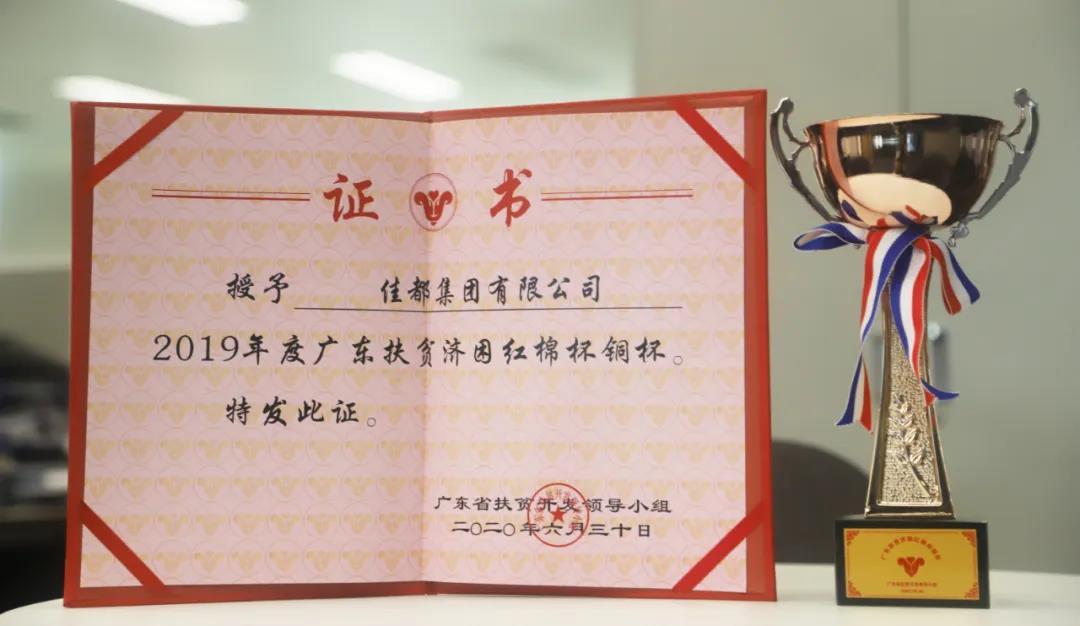 证书
授予 佳都集团有限公司
2019年度广东扶贫济困红棉杯铜杯。
特发此证。
广东省扶贫开发领导小组
二〇二〇年六月三十日